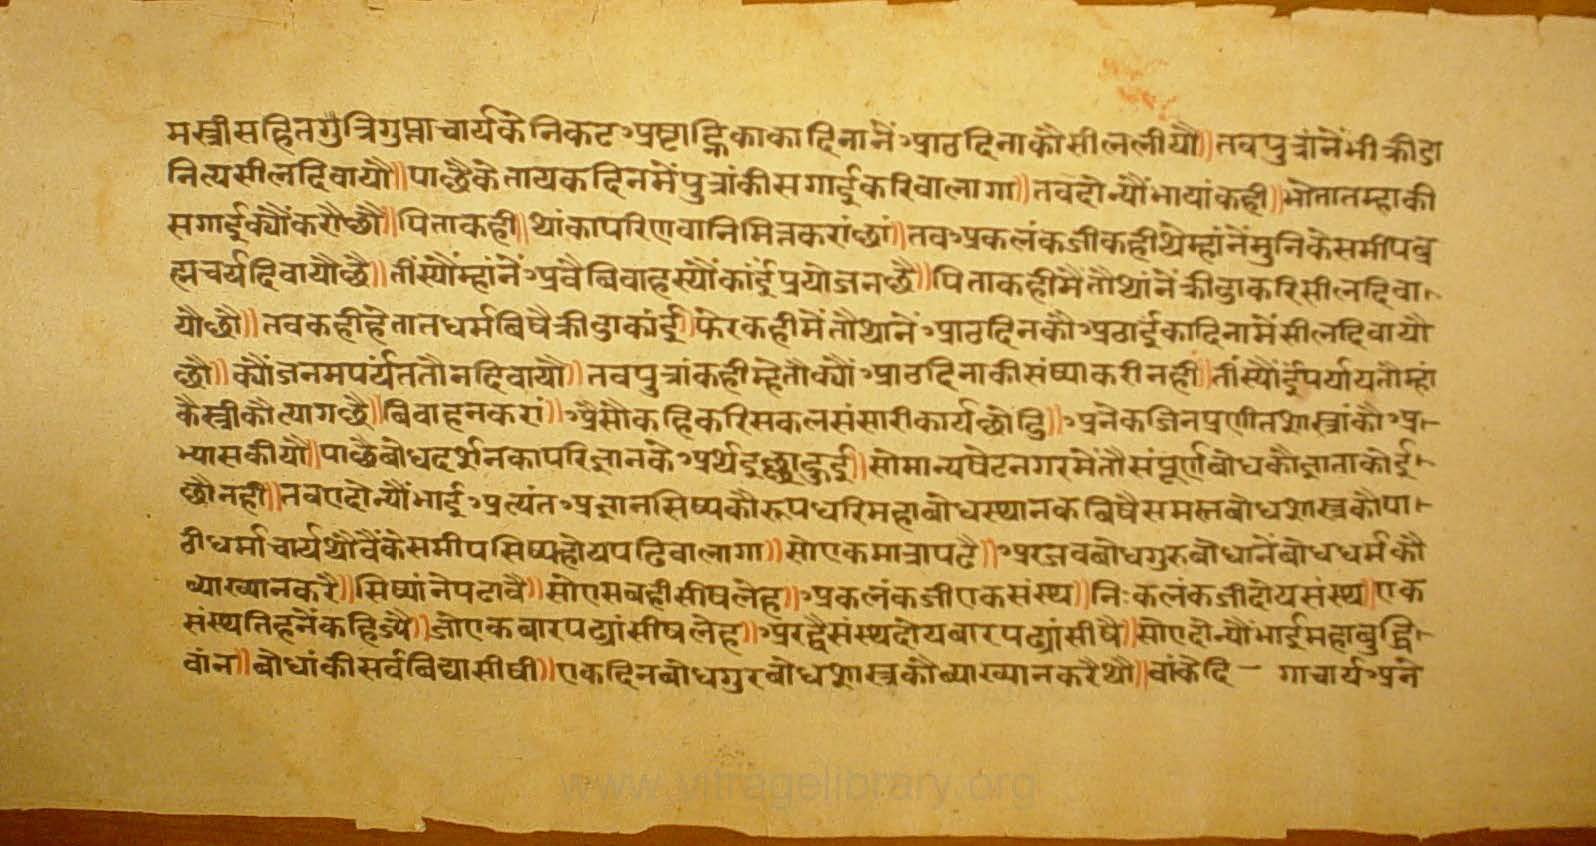 मस्त्रीसहितगुत्रिगुप्ताचार्यकेनिकटअष्टाह्निकाकादिनानेंआठदिनाकौसीललीयौ॥तवपुत्रांनेंभीक्रीडा
नित्यसीलदिवायौ॥पाछैकेतायकदिनमेंपुत्रांकीसगाईकरिवालागा॥तवदोन्यौंभायांकही॥भोतातम्हाकी
सगाईक्यौंकरौछौ॥पिताकही॥थांकापरिणवानिमित्तकरांछां॥तवअकलंकजीकहीथेम्हांनेंमुनिकेसमीपब्र
ह्मचर्यदिवायौछै॥तींस्यौंम्हांनेंअवैबिवाहस्यौंकांईप्रयोजनछै॥पिताकहीमैतौथांनेंक्रीडाकरिसीलदिवा
यौछौ॥तवकहीहेतातधर्मबिषैक्रीडाकांई॥फेरकहीमेंतौथानेंआठदिनकौअठाईकादिनामेंसीलदिवायौ
छौ॥क्यौंजनमपर्यंततौनदिवायौ॥तवपुत्रांकहीम्हेतौक्यौंआठदिनाकीसंष्याकरीनहीं॥तींस्यौंईपर्यायतौम्हां
कैस्त्रीकौत्यागछै॥बिवाहनकरां॥अैसौकहिकरिसकलसंसारीकार्यछोडि॥अनेकजिनप्रणीतशास्त्रांकौअ
भ्यासकीयौ॥पाछैबोधदर्शनकापरिज्ञानकेअर्थइछ्याहुई॥सोमान्यषेटनगरमेंतौसंपूर्णबोधकौज्ञाताकोई
छौनही॥तवएदोन्यौंभाईअत्यंतअज्ञानसिष्यकौरूपधरिमहाबोधस्थानकबिषैसमस्तबोधशास्त्रकौपा
ठीधर्माचार्यथौवैंकेसमीपसिष्यहोयपढिवालागा॥सोएकमात्रापढै॥अरजवबोधगुरुबोधानेंबोधधर्मकौ
व्याख्यानकरै॥सिष्यांनेपढावै॥सोएसवहीसीषलेह॥अकलंकजीएकसंस्थ॥निःकलंकजीदोयसंस्थ॥एक
संस्थतिहनेंकहिज्यै॥जोएकबारपढ्यांसीषलेह॥अरद्वैसंस्थदोयबारपढ्यांसीषै॥सोएदोन्यौंभाईमहाबुद्धि
वांन॥बोधांकीसर्वबिद्यासीषी॥एकदिनबोधगुरबोधशास्त्रकौव्याख्यानकरैथौ॥वांकेदि गाचार्यअने
www.vitragelibrary.org